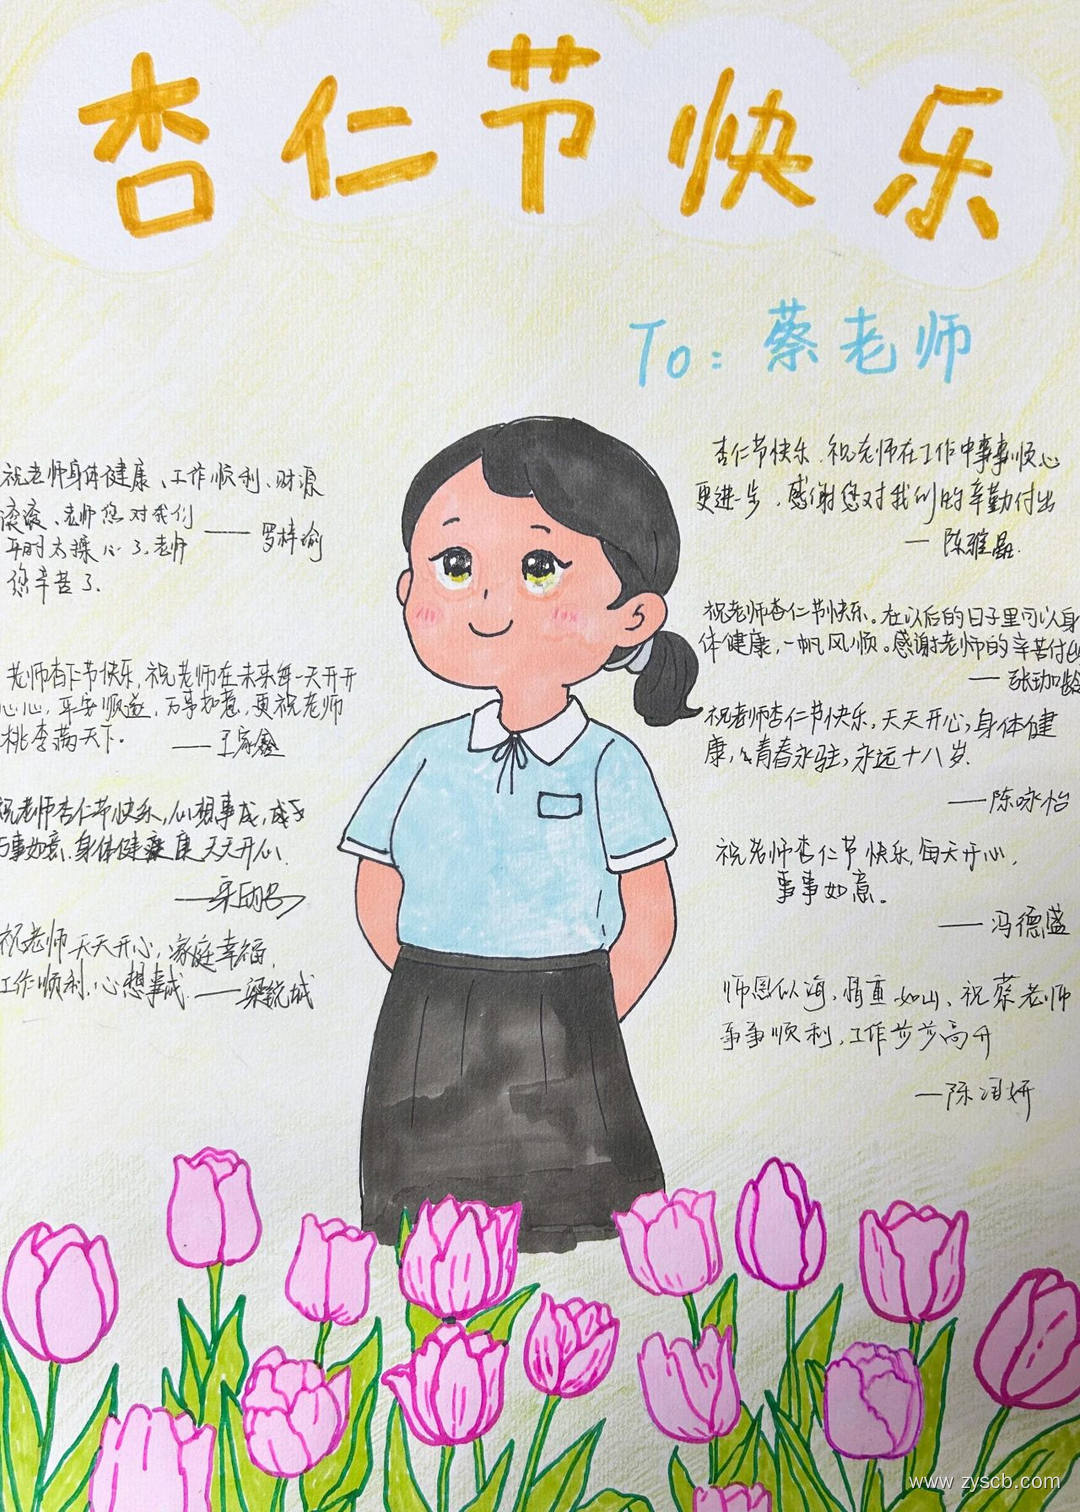 杏仁节快乐
To：蔡老师
祝老师身体健康、工作顺利、财源
滚滚、老师您对我们
平时太操心了，老师
您辛苦了.
——罗梓瑜
老师杏仁节快乐,祝老师在未来每一天开开
心心,平安顺遂,万事如意,更祝老师
桃李满天下.
——王家鑫
祝老师杏仁节快乐,心想事成,
万事如意.身体健康 天天开心.
祝老师天天开心,家庭幸福,
工作顺利,心想事成.——梁锐城
杏仁节快乐.祝老师在工作中事事顺心
更进一步.感谢您对我们的辛勤付出
—陈雅晶.
祝老师杏仁节快乐。在以后的日子里可以身
体健康,一帆风顺。感谢老师的辛苦付出
—张珈龄
祝老师杏仁节快乐,天天开心,身体健
康,青春永驻,永远十八岁.
—陈咏怡
祝老师杏仁节快乐,每天开心,
事事如意。
—冯德盛
师恩似海,情重如山、祝蔡老师
事事顺利,工作步步高升
—陈洎妍
www.zyscb.com